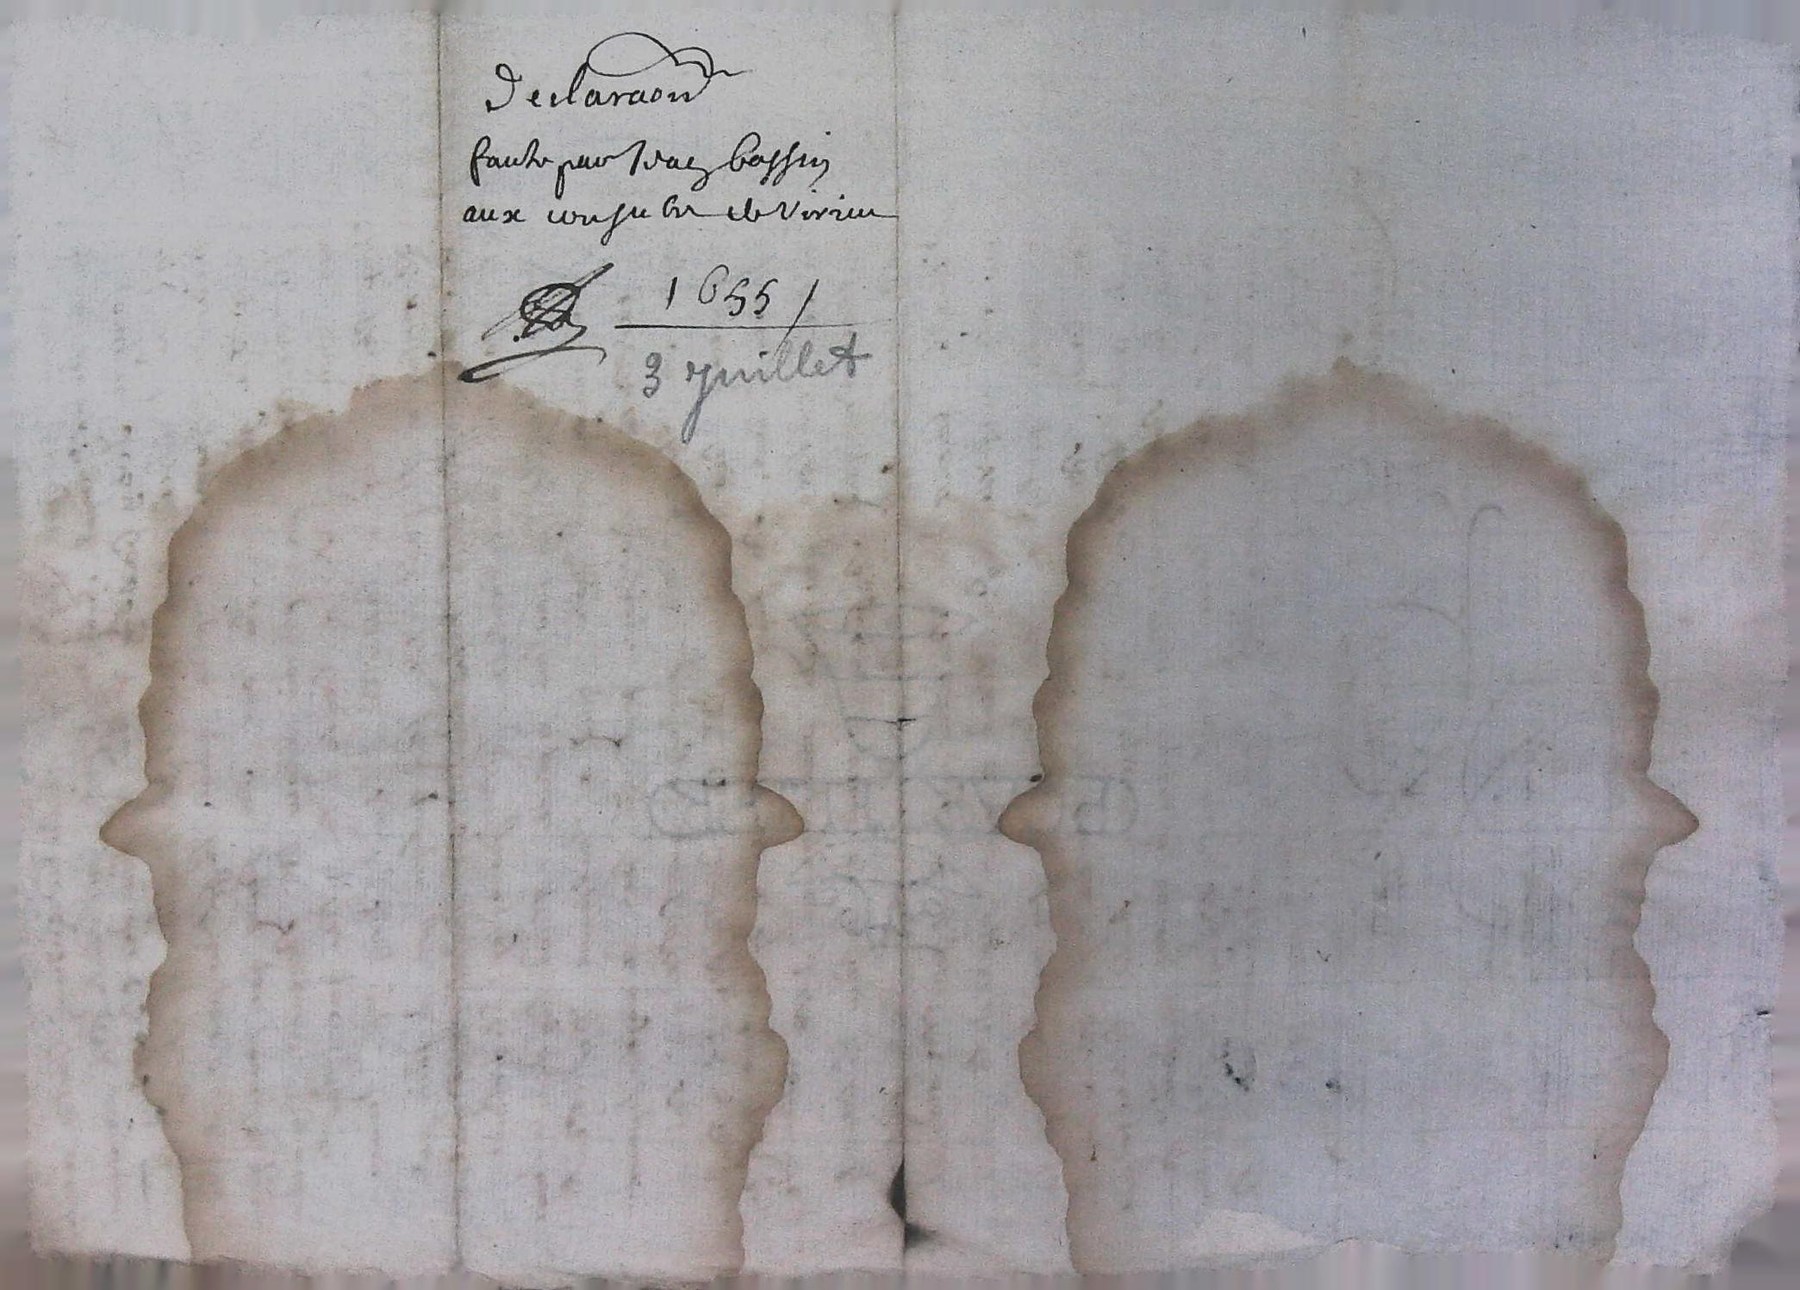 Declaraon
faicte par Isaac bossin
aux consulz de Virieu
1655
3 Juillet